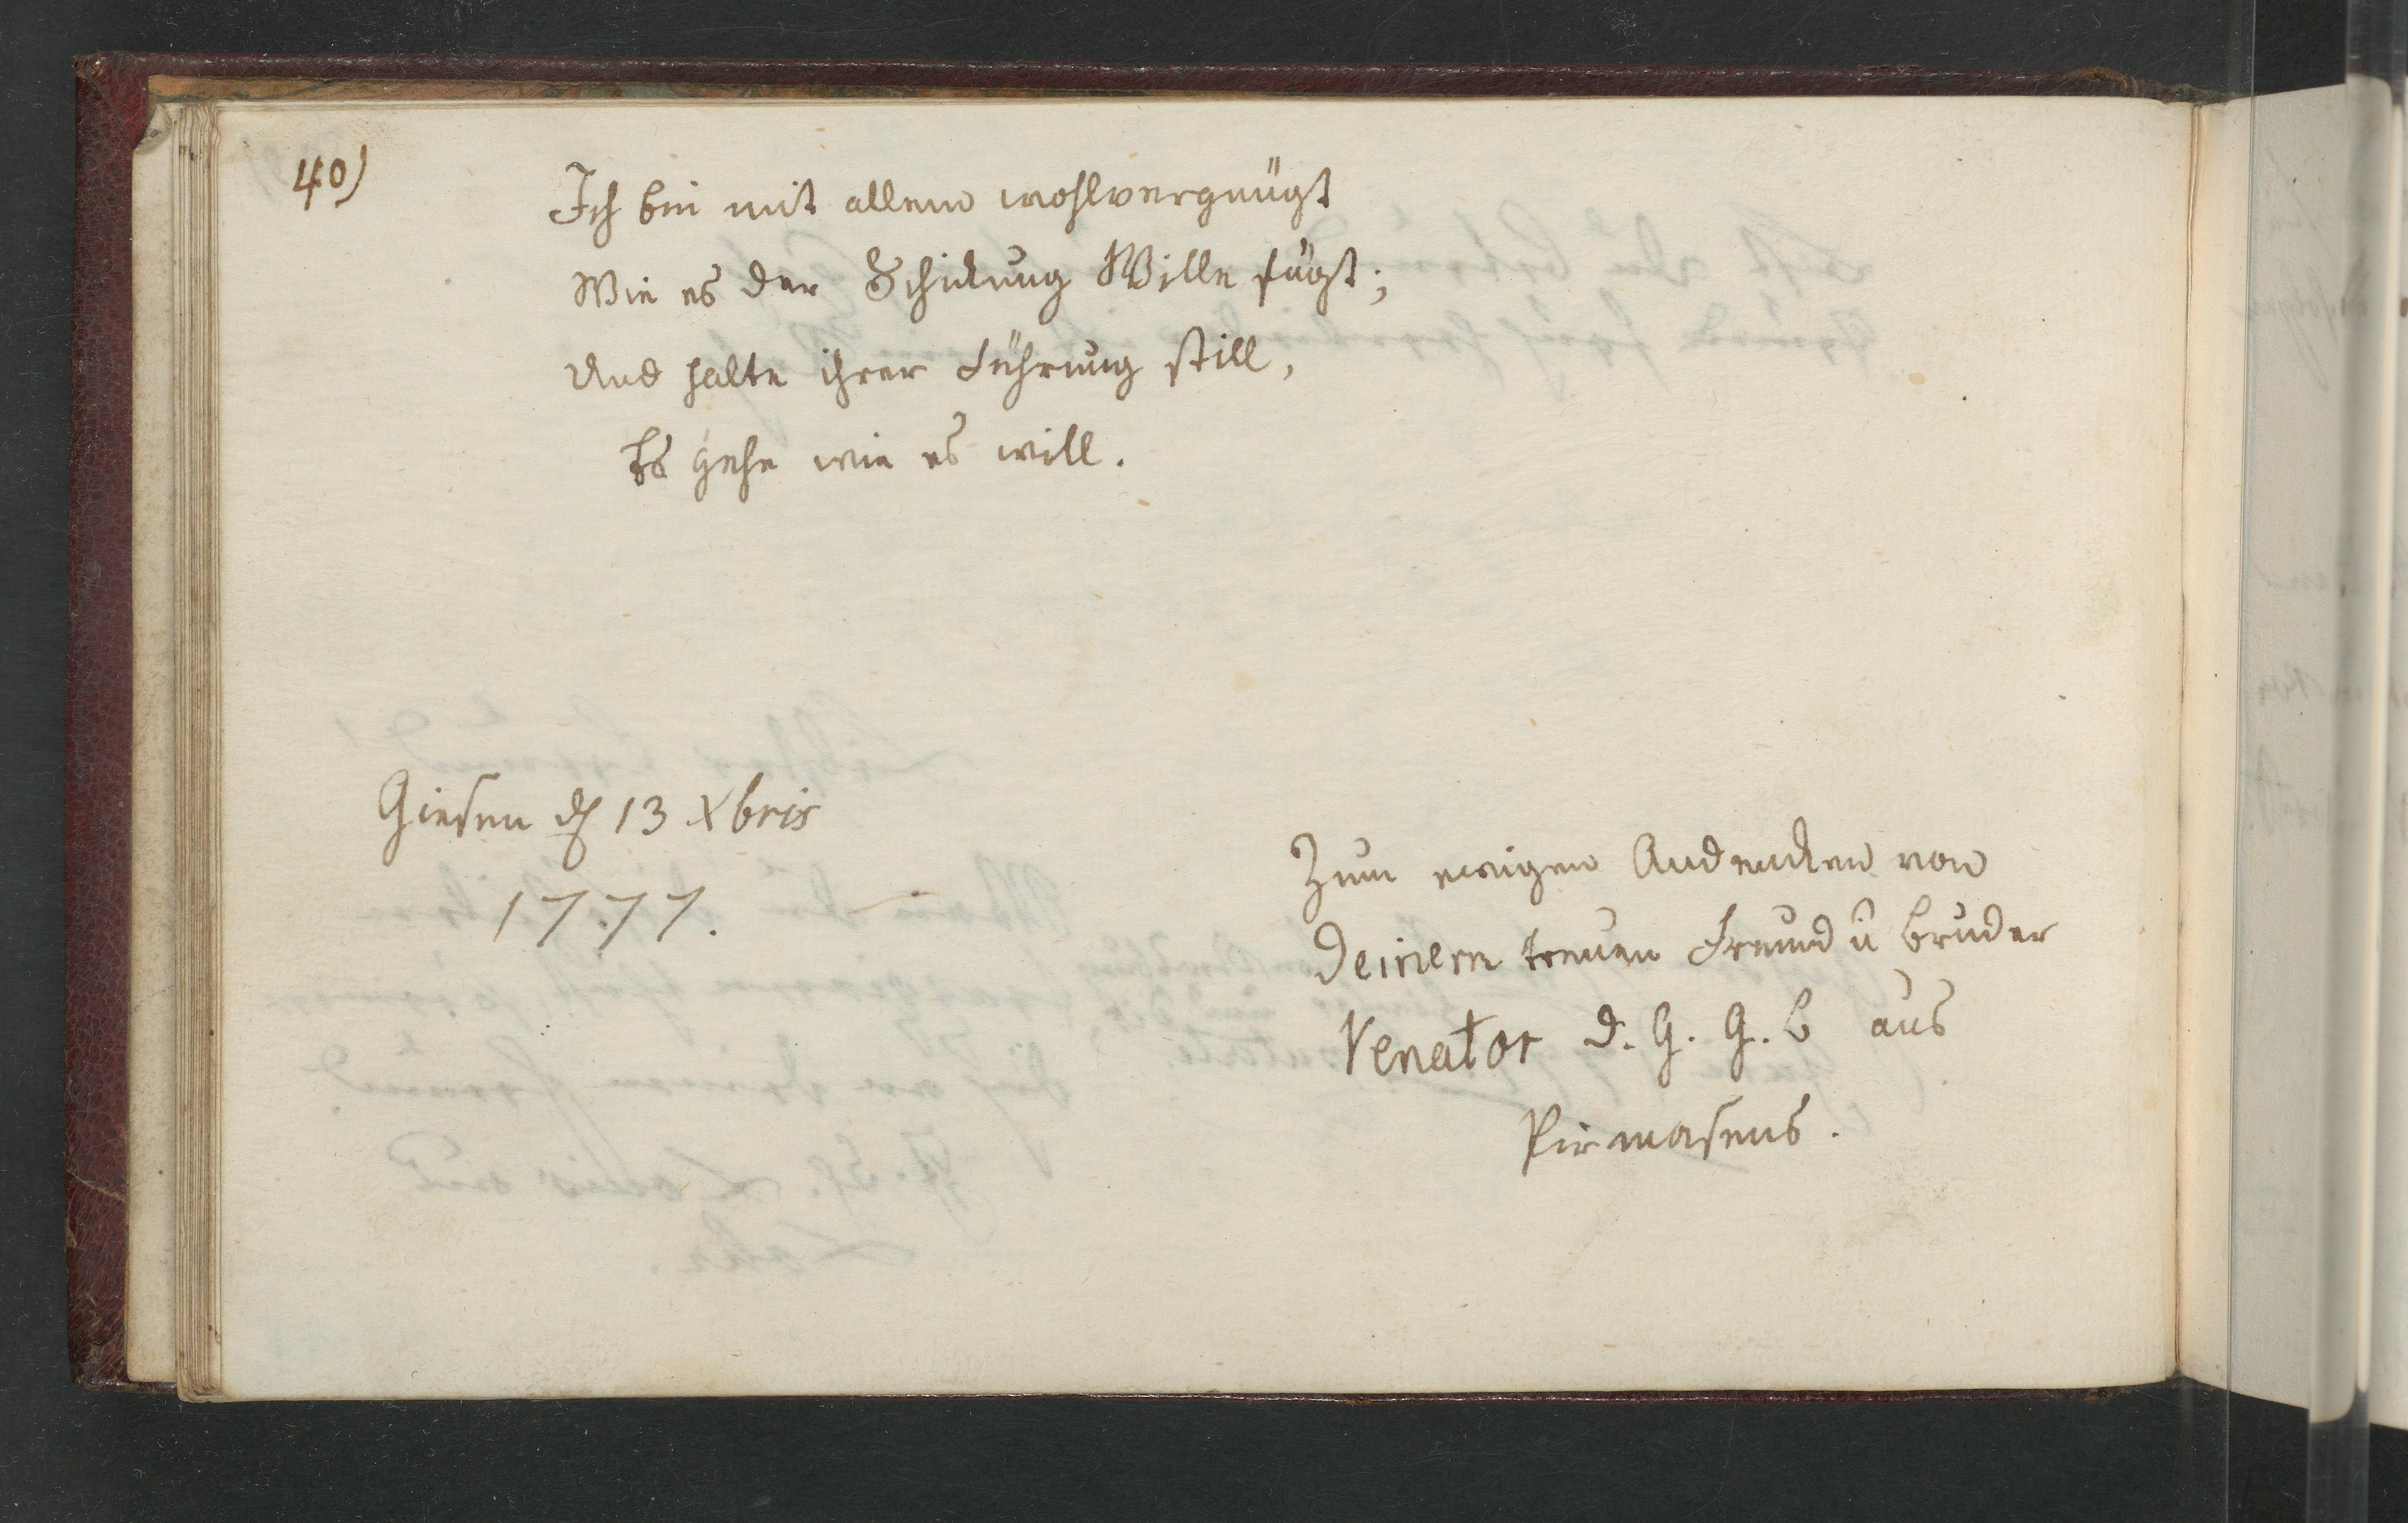 40)
Ich bin mit allem wohlvergnügt
Wie es der Schickung Wille fügt;
Und halte ihrer Führung still,
Es gehe wie es will.
Giesen d 13 Xbris
1777.
Zum ewigen Andencken von
Deinem treuen Freund u Bruder
Venator d. G. G. B aus
Pirmasens.